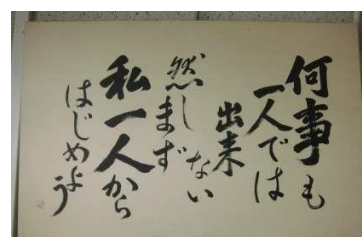 何事も
一人では
出来
ない
然しまず
私一人から
はじめよう